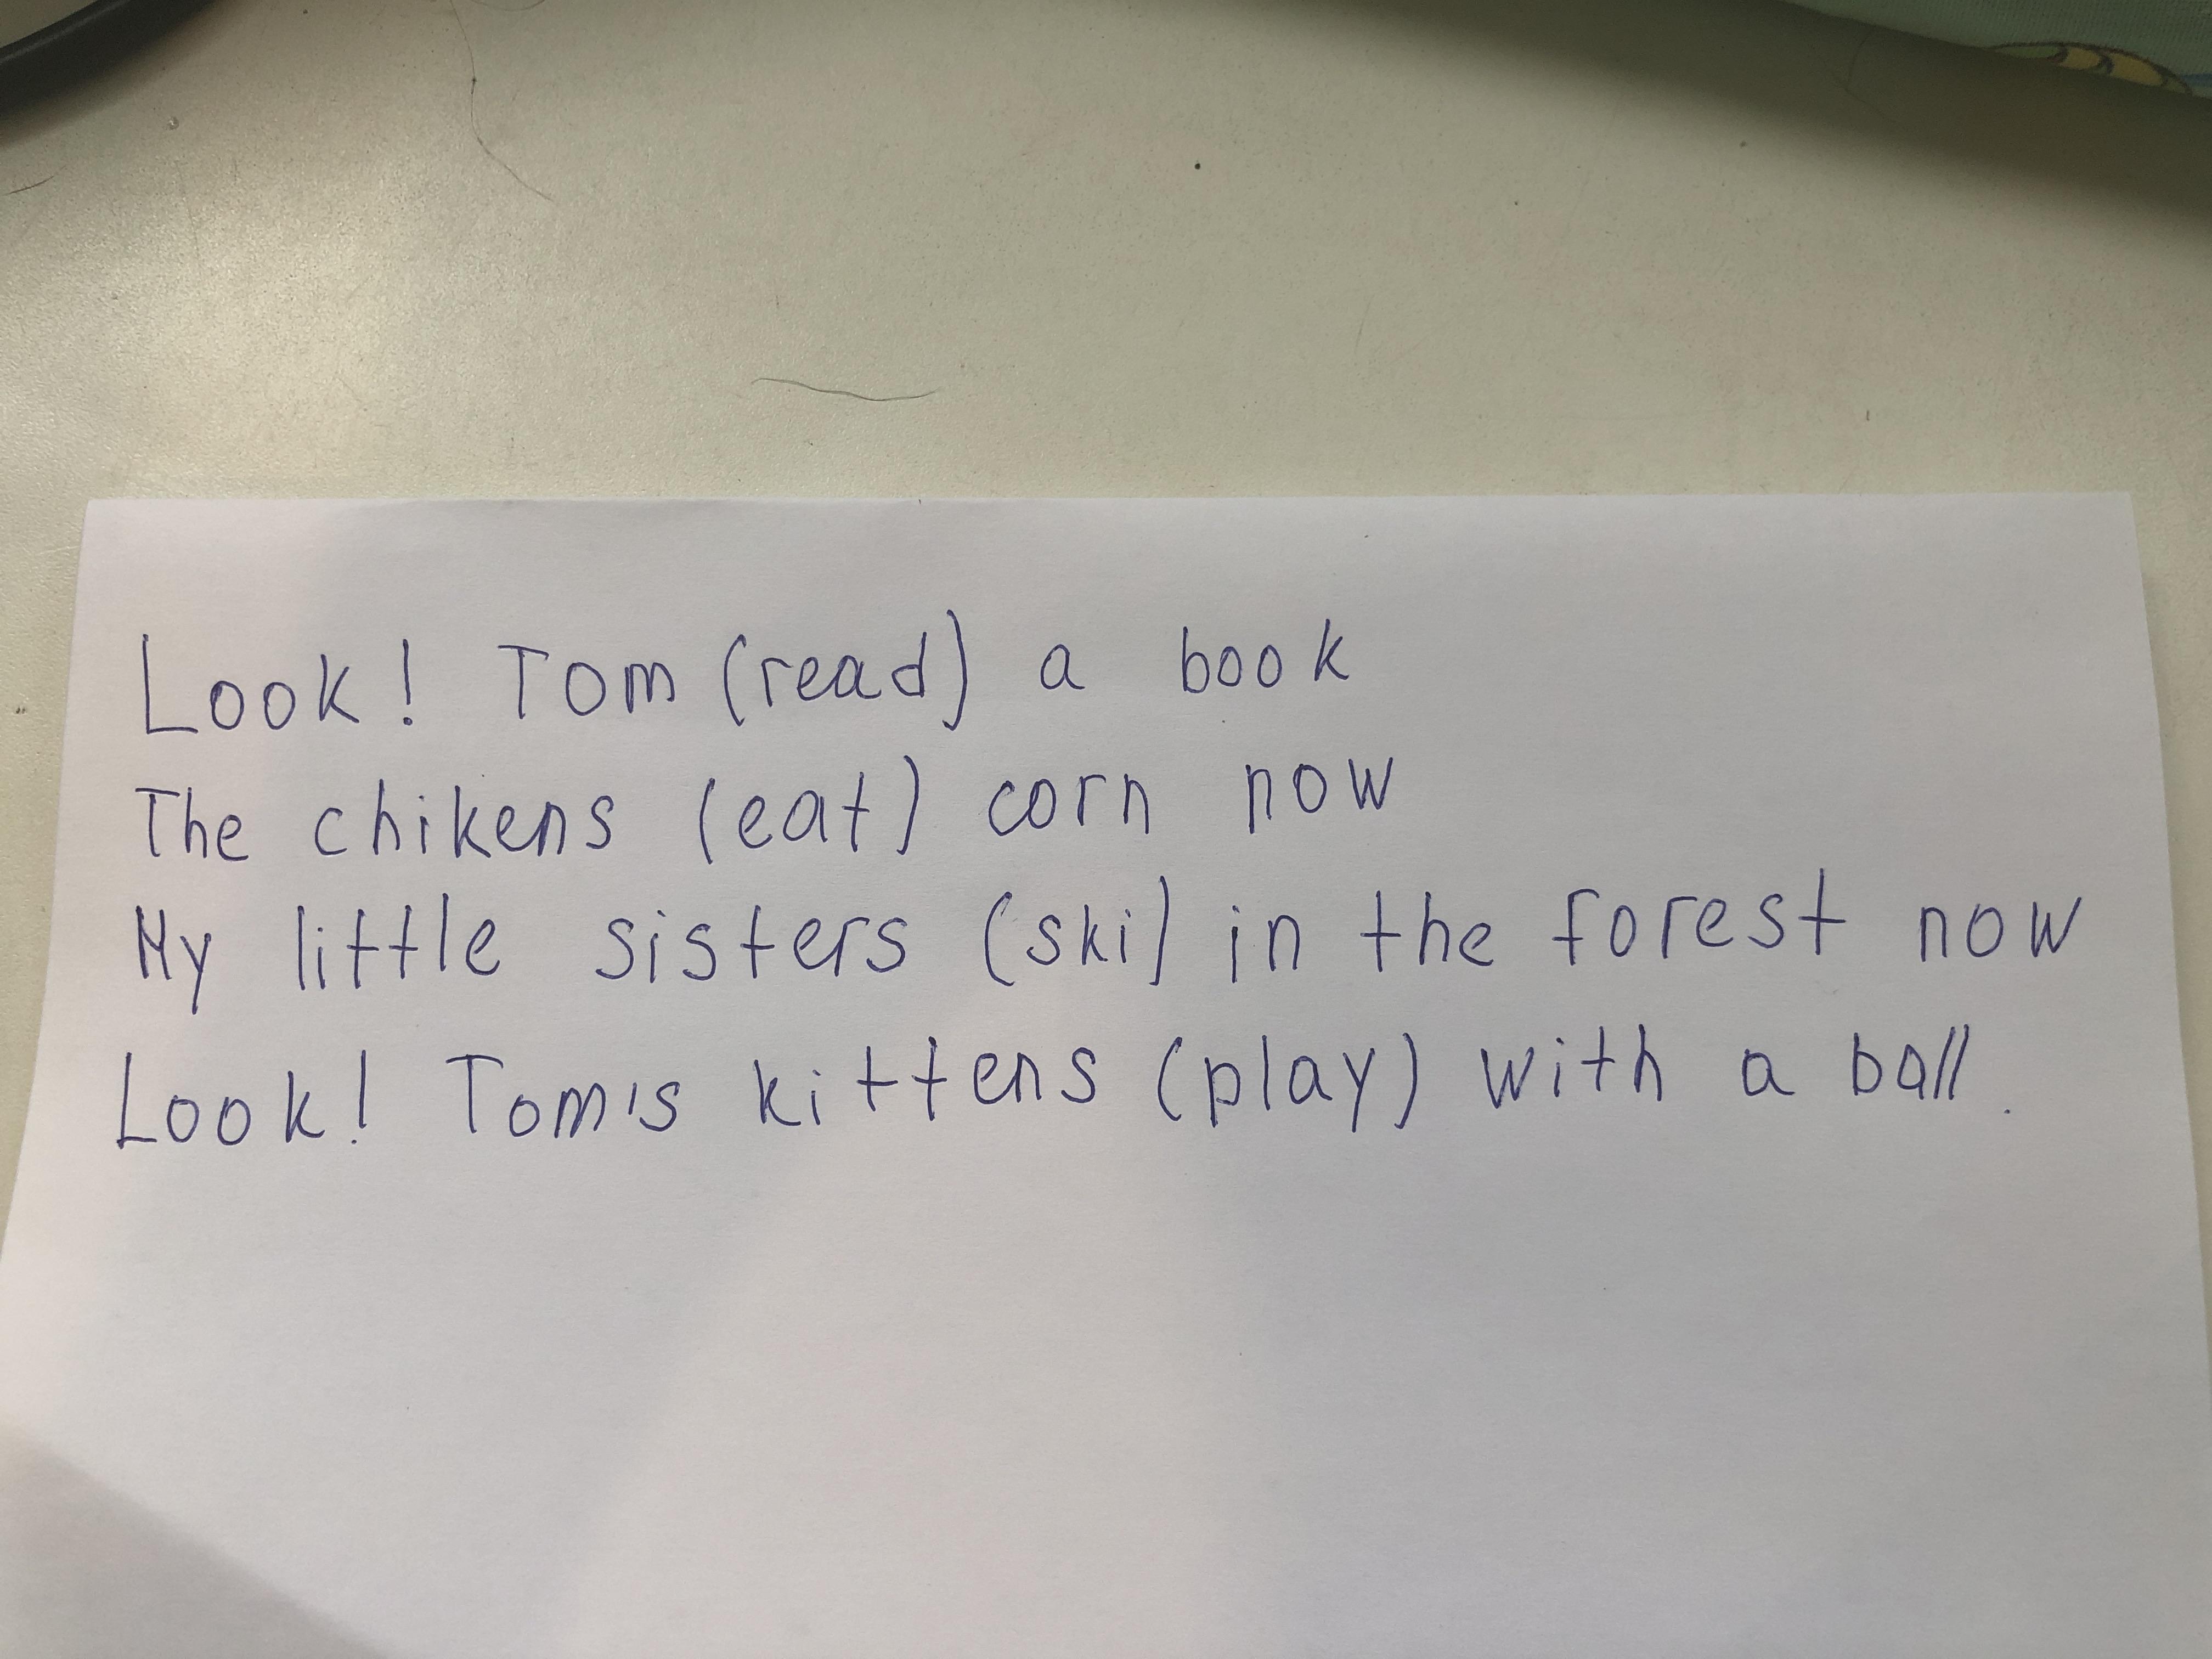 Look! Tom (read) a book
The chikens (eat) corn now
My little sisters (ski) in the forest now
Look! Tom's kittens (play) with a ball.